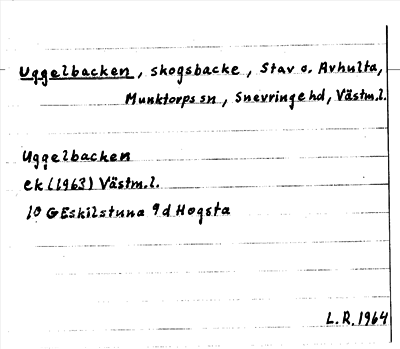 Uggelbacken, skogsbacke, Stav o. Avhulta,
Munktorps sn, Snevringe hd, Västm.l.
Uggelbacken
ek (1963) Västm.l.
10 G Eskilstuna 9 d Hogsta
L.R. 1964